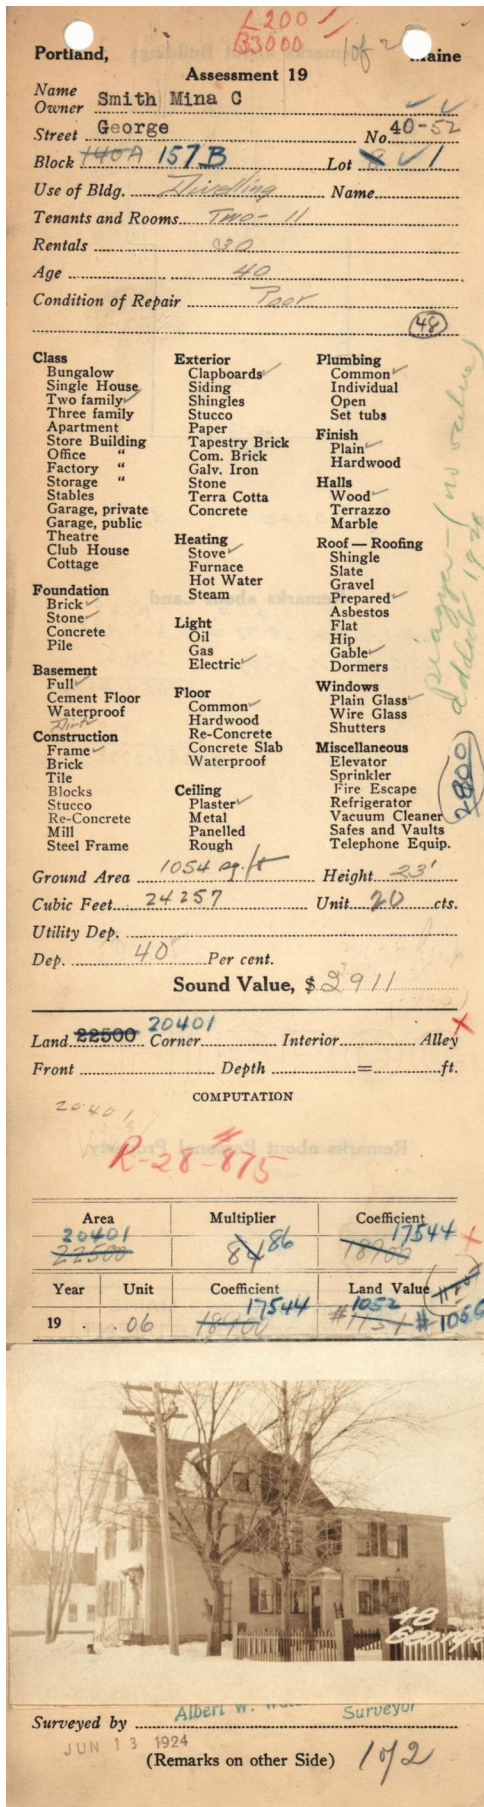 L200
B3000 1 of 2
Portland, Maine
Assessment 19
Name
Owner Smith Mina C
Street George No. 40-52
Block 140A 157 B Lot 1
Use of Bldg. Dwelling Name
Tenants and Rooms Two- 11
Rentals 30
Age 40
Condition of Repair Poor
48
Class
Bungalow
Single House
Two family
Three family
Apartment
Store Building
Office "
Factory "
Storage "
Stables
Garage, private
Garage, public
Theatre
Club House
Cottage
Foundation
Brick
Stone
Concrete
Pile
Basement
Full
Cement Floor
Waterproof
Dirt
Construction
Frame
Brick
Tile
Blocks
Stucco
Re-Concrete
Mill
Steel Frame
Exterior
Clapboards
Siding
Shingles
Stucco
Paper
Tapestry Brick
Com. Brick
Galv. Iron
Stone
Terra Cotta
Concrete
Heating
Stove
Furnace
Hot Water
Steam
Light
Oil
Gas
Electric
Floor
Common
Hardwood
Re-Concrete
Concrete Slab
Waterproof
Ceiling
Plaster
Metal
Panelled
Rough
Plumbing
Common
Individual
Open
Set tubs
Finish
Plain
Hardwood
Halls
Wood
Terrazzo
Marble
Roof — Roofing
Shingle
Slate
Gravel
Prepared
Asbestos
Flat
Hip
Gable
Dormers
Windows
Plain Glass
Wire Glass
Shutters
Miscellaneous
Elevator
Sprinkler
Fire Escape
Refrigerator
Vacuum Cleaner
Safes and Vaults
Telephone Equip.
(no value)
added 1926
2800
Ground Area 1054 sq. ft Height 23'
Cubic Feet 24257 Unit 20 cts.
Utility Dep.
Dep. 40 Per cent.
Sound Value, $ 2911
Land 22500 20401 Corner Interior Alley
Front Depth = ft.
COMPUTATION
20401
R-28-#875
Area Multiplier Coefficient
20401 86 17544
22500 84 18900
Year Unit Coefficient Land Value
17544 #1052
19 .06 18900 #1134 #1050
48
George
Surveyed by Albert W. Surveyor
JUN 13 1924
(Remarks on other Side) 1 of 2